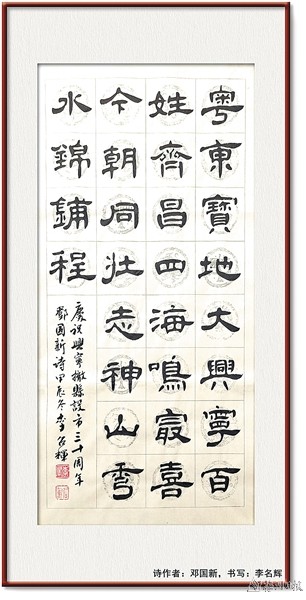 粤東寶地大興寧百
姓齊昌四海鳴最喜
今朝同壮志神山秀
水錦鋪程
慶祝興寧撤縣設市三十周年
鄧國新詩甲辰冬李名輝
诗作者：邓国新，书写：李名辉